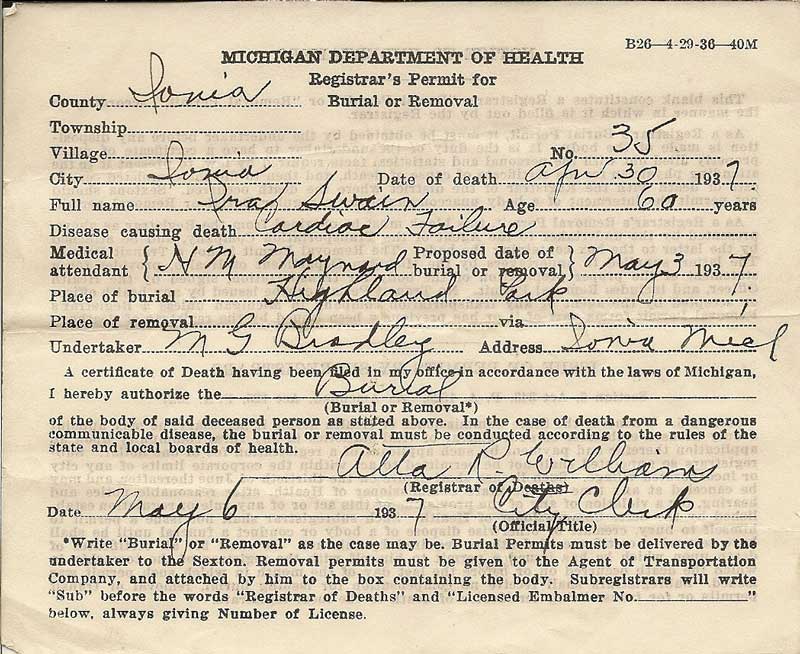 B26—4-29-36—40M
MICHIGAN DEPARTMENT OF HEALTH
Registrar's Permit for
County Ionia Burial or Removal
Township
Village No. 35
City Ionia Date of death Apr 30 1937
Full name Swain Age 60 years
Disease causing death Cardiac Failure
Medical attendant { N M Maynard Proposed date of burial or removal } May 3 1937
Place of burial Highland Park
Place of removal via
Undertaker M G Bradley Address Ionia Mich
A certificate of Death having been filed in my office in accordance with the laws of Michigan,
I hereby authorize the Burial
(Burial or Removal*)
of the body of said deceased person as stated above. In the case of death from a dangerous
communicable disease, the burial or removal must be conducted according to the rules of the
state and local boards of health.
Alla R. Williams
(Registrar of Deaths)
Date May 6 1937 City Clerk
(Official Title)
*Write "Burial" or "Removal" as the case may be. Burial Permits must be delivered by the
undertaker to the Sexton. Removal permits must be given to the Agent of Transportation
Company, and attached by him to the box containing the body. Subregistrars will write
"Sub" before the words "Registrar of Deaths" and "Licensed Embalmer No. "
below, always giving Number of License.